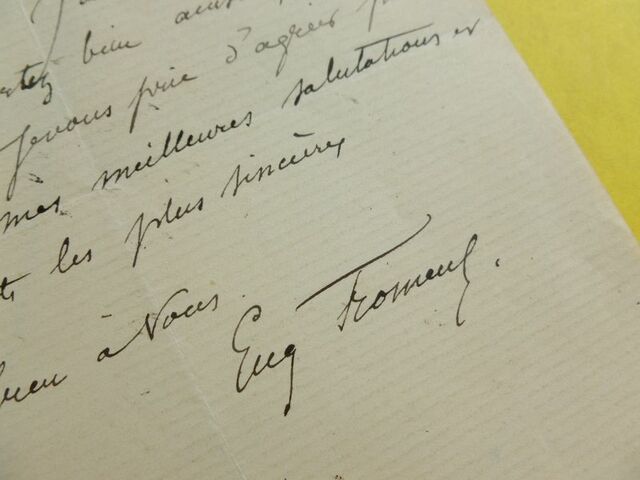 bien
Je vous prie d'agréer
mes meilleures salutations et
les plus sincères
à Vous
Eug Froment.